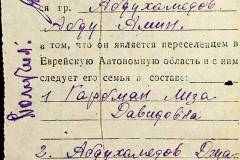 я гр. Абдухамедов
Абду Амин.
в том, что он является переселенцем в
Еврейскую Автономную область и с ним
следует его семья в составе:
1 Гарбман Лиза
Давидовна
2. Абдухамедов
Получил: